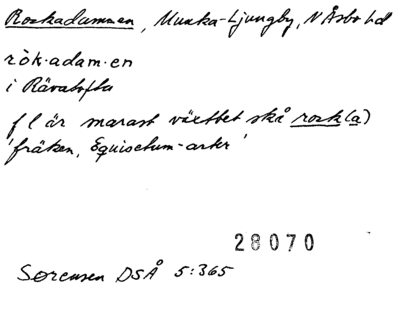 Roskadammen, Munka-Ljungby, N Åsbo hd
rὸk·adam·en
i Rävatofta
f l är marast växtbet skå rosk(a)
'fräken, Equisetum-arter'
28070
Sørensen DSÅ 5:365